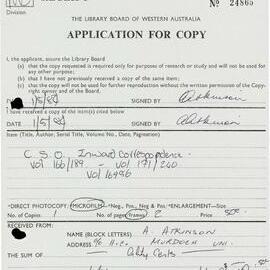 Division
Nº 24865
THE LIBRARY BOARD OF WESTERN AUSTRALIA
APPLICATION FOR COPY
I, the applicant, assure the Library Board
(a) that the copy requested is required only for purposes of research or study and will not be used for any other purpose;
(b) that I have not previously received a copy of the same item;
(c) that the copy will not be used for further reproduction without the written permission of the Copyright owner and of the Board.
DATE 1/5/84 SIGNED BY A Atkinson
I have received a copy of the item(s) cited below
DATE 1/5/84 SIGNED BY A Atkinson
Item (Title, Author, Serial Title, Volume No., Date, Pagination)
C.S.O. Inward Correspondence
Vol 166/189 - Vol 171/240
*DIRECT PHOTOCOPY: MICROFILM *Neg., Pos., Neg & Pos. ENLARGEMENT—Size
No. of Copies 1 No. of frames 2 Price
RECEIVED FROM:
NAME (BLOCK LETTERS) A. ATKINSON
ADDRESS MURDOCH UNI.
THE SUM OF Cents